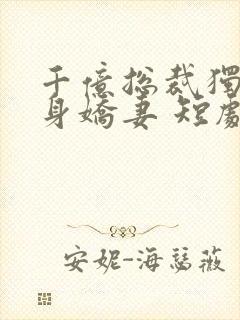 千億總裁獨
身嬌妻 短劇
安妮-海瑟薇